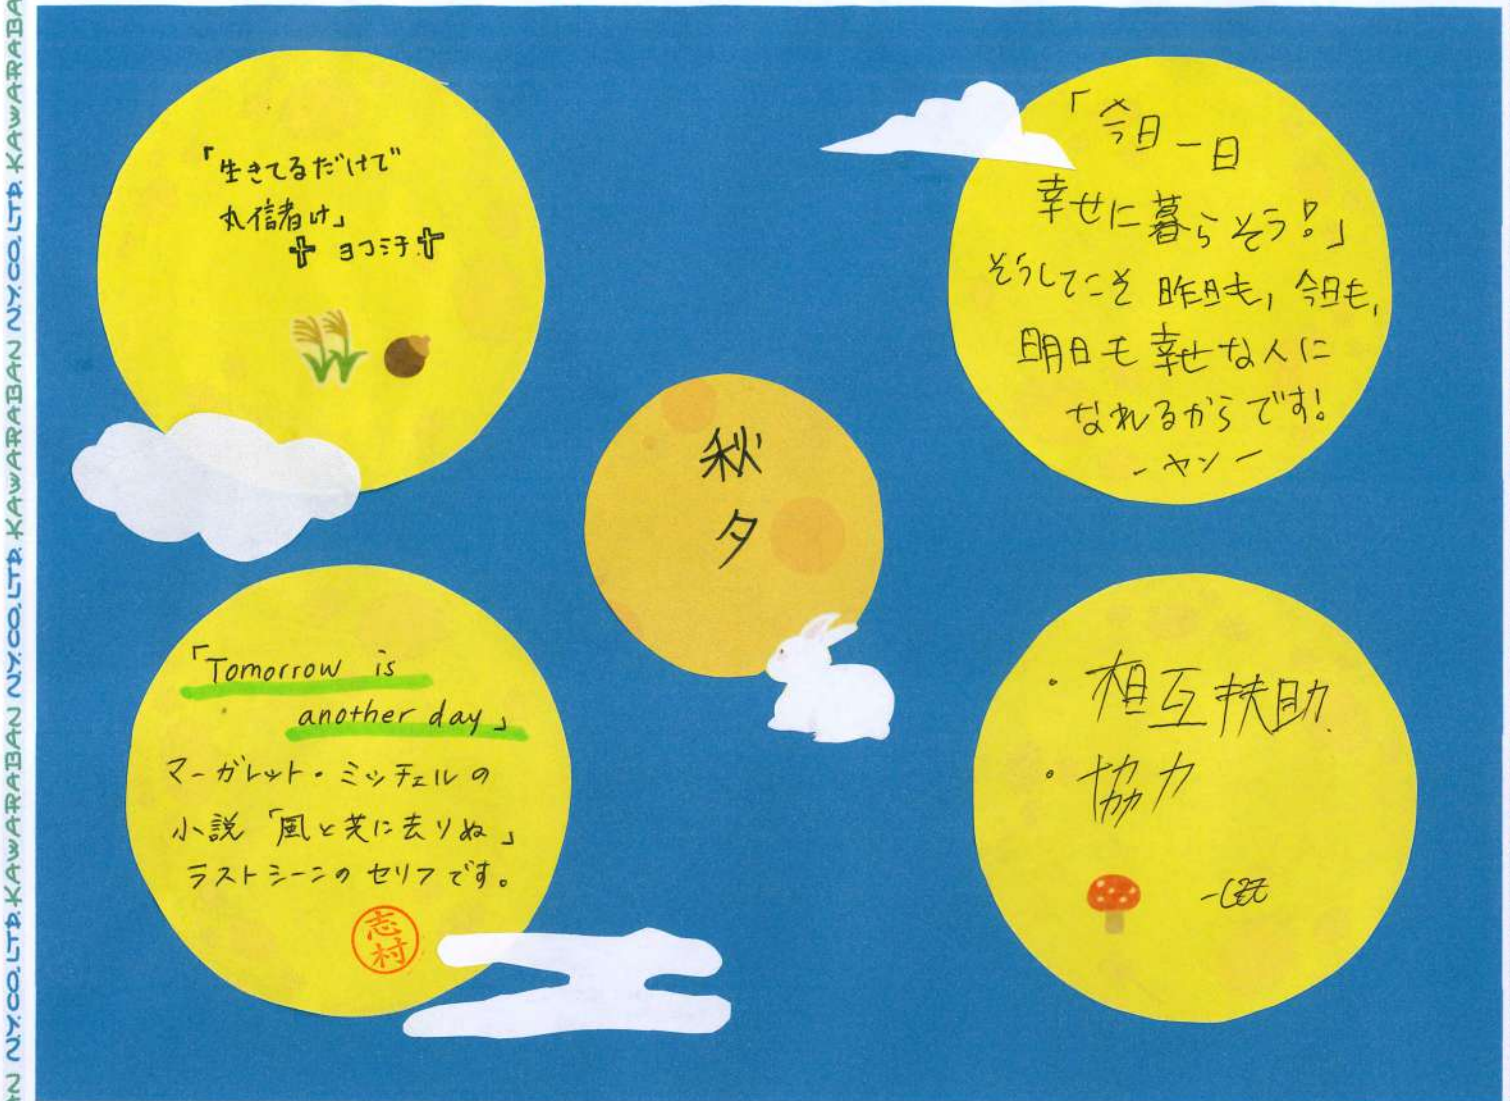 KAWARABAN N.Y.CO.LTD. KAWARABAN N.Y.CO.LTD. KAWARABAN N.Y.CO.LTD.
「生きてるだけで
丸信者け」
ヨコミチ
「今日一日
幸せに暮らそう!」
そうしてこそ 昨日も, 今日も,
明日も幸せな人に
なれるからです!
-ヤン-
秋
夕
「Tomorrow is
another day」
マーガレット・ミッチェルの
小説「風と共に去りぬ」
ラストシーンのセリフです。
志
村
・相互扶助
・協力